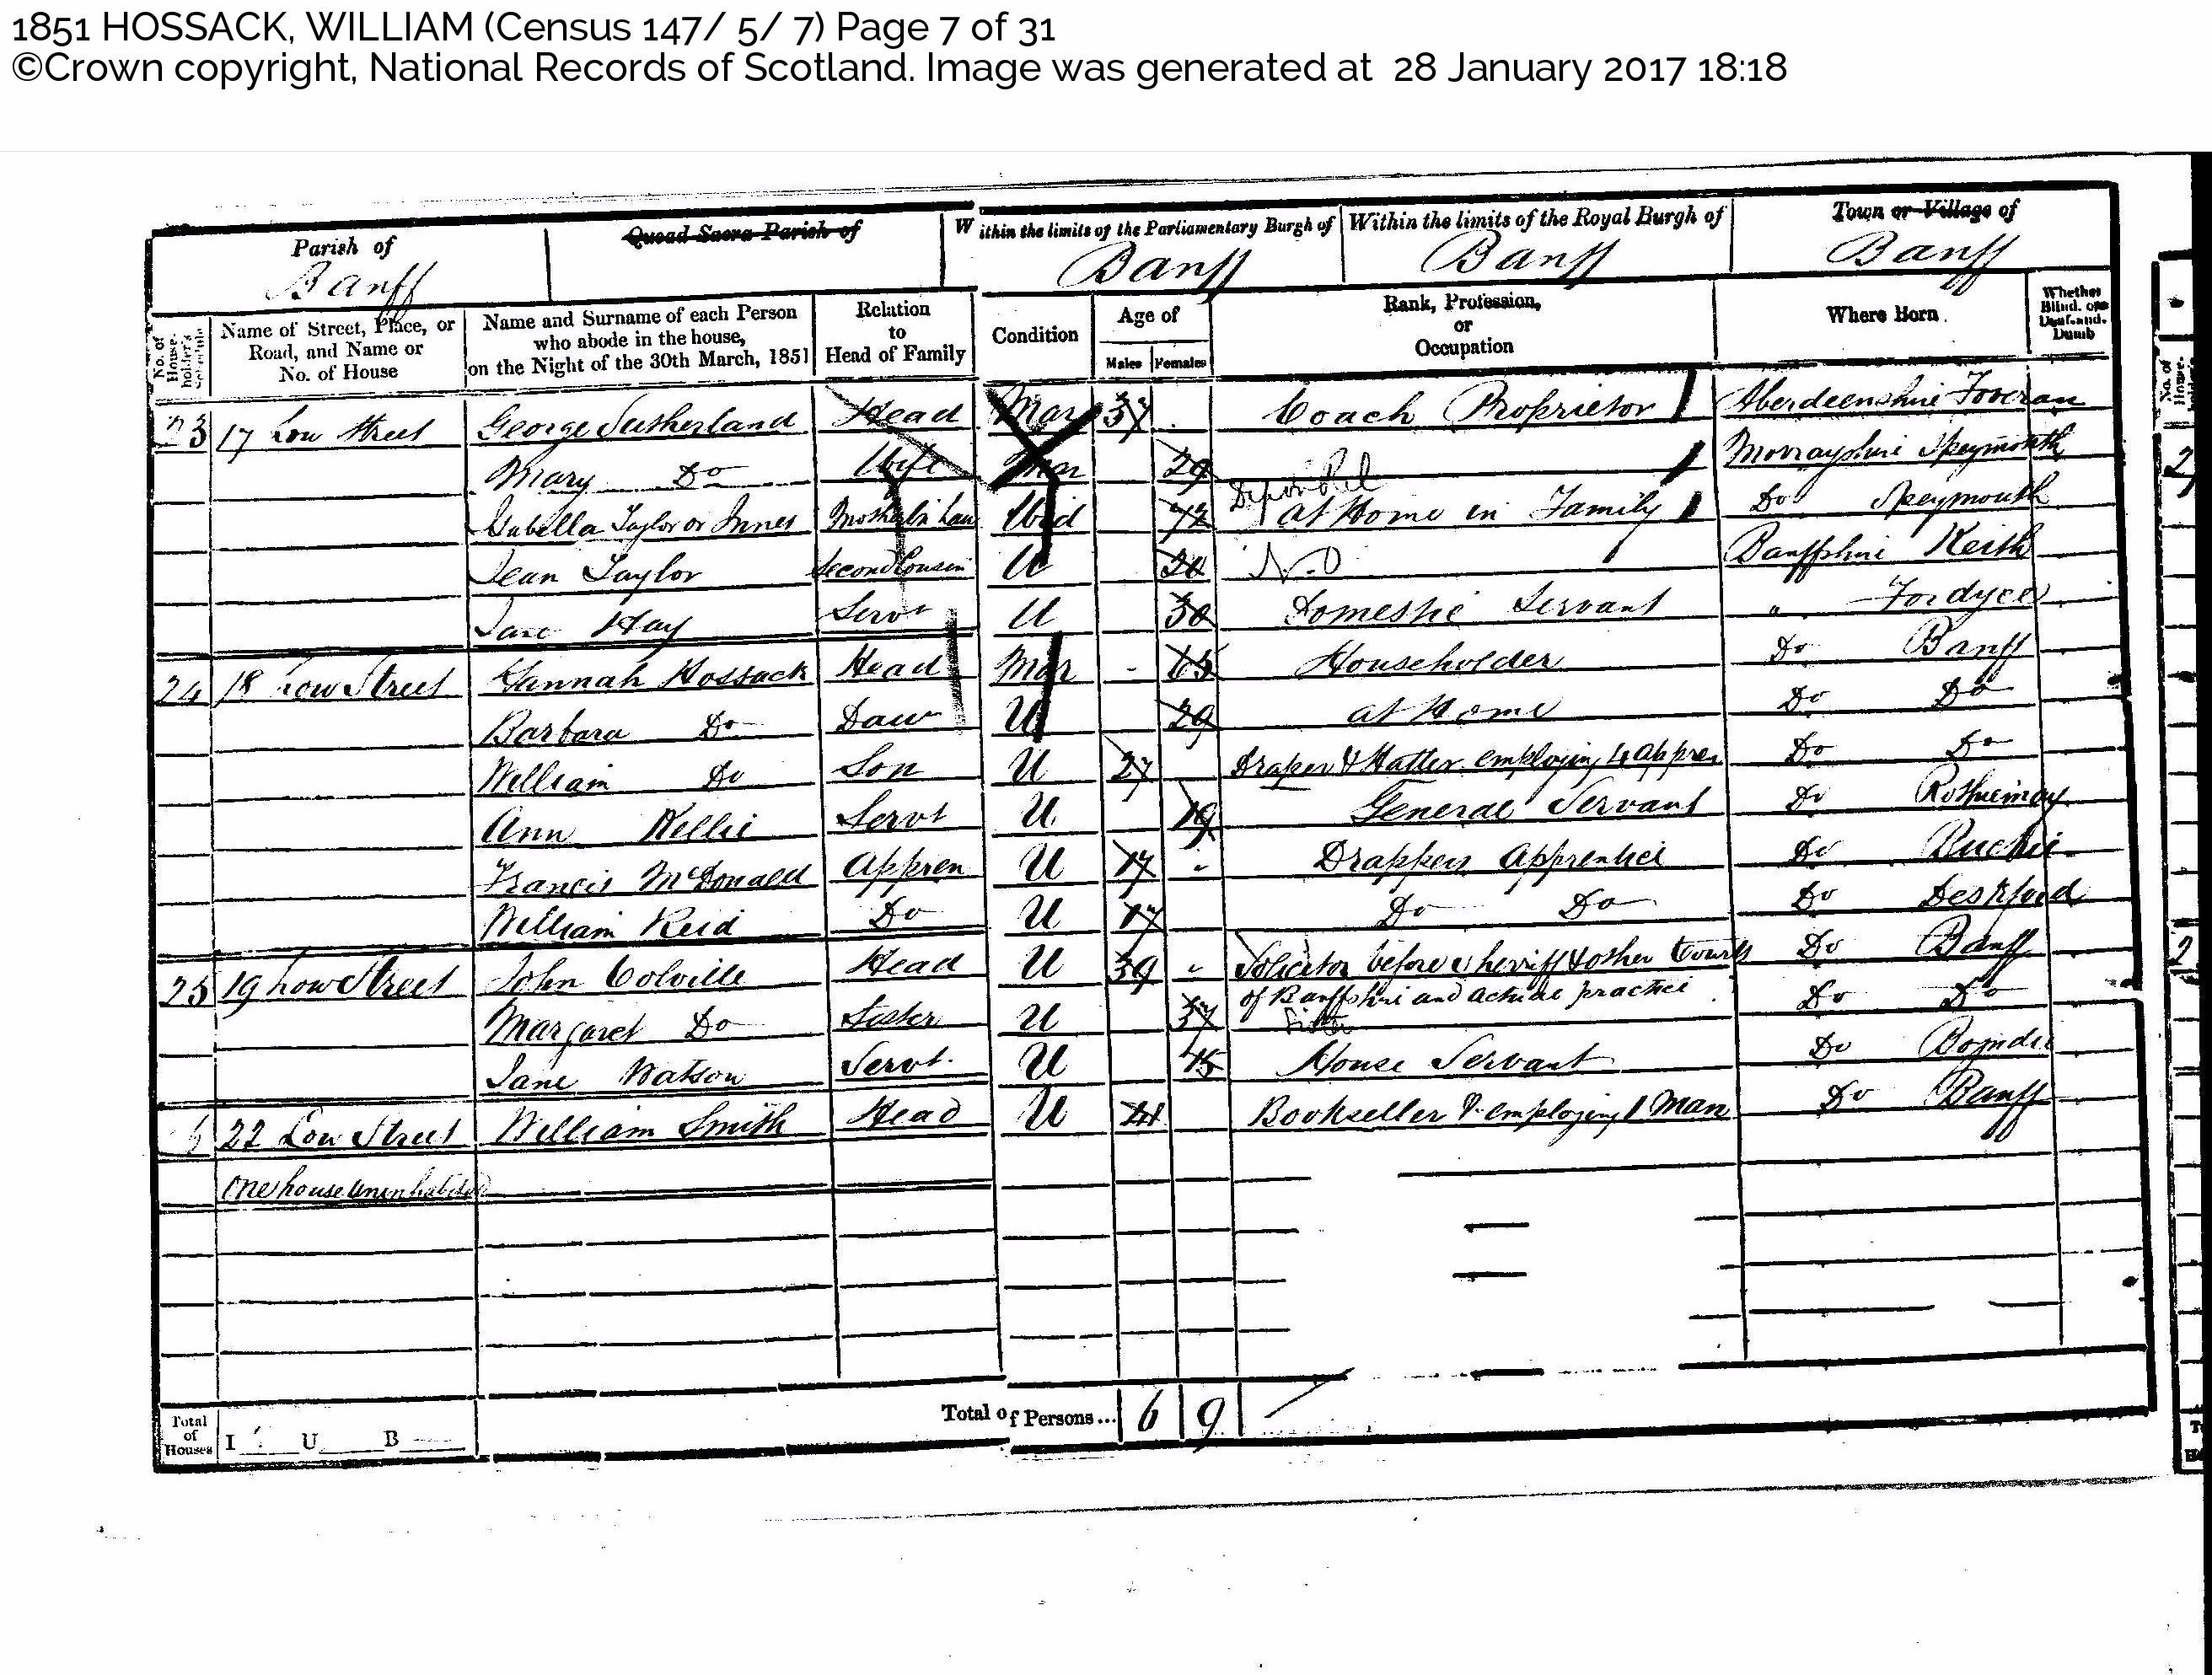 1851 HOSSACK, WILLIAM (Census 147/ 5/ 7) Page 7 of 31
©Crown copyright, National Records of Scotland. Image was generated at 28 January 2017 18:18
Parish of Quoad Sacra Parish of Within the limits of the Parliamentary Burgh of Within the limits of the Royal Burgh of Town or Village of
Banff Banff Banff Banff
No. of House-holder's Schedule Name of Street, Place, or Road, and Name or No. of House Name and Surname of each Person who abode in the house, on the Night of the 30th March, 1851 Relation to Head of Family Condition Age of Males Females Rank, Profession, or Occupation Where Born Whether Blind, or Deaf-and-Dumb
23 17 Low Street George Sutherland Head Mar 37 Coach Proprietor Aberdeenshire Foveran
Mary Do Wife Mar 29 Morrayshire Speymouth
Isabella Taylor or Innes Mother in Law Wid 72 at Home in Family Do Speymouth
Jean Taylor Second Cousin U 20 Banffshire Keith
Jane Hay Servt U 30 Domestic Servant " Fordyce
24 18 Low Street Hannah Hossack Head Mar - 65 Householder Do Banff
Barbara Do Daur U 29 at Home Do Do
William Do Son U 27 Draper & Hatter employing 4 appren Do Do
Ann Kellie Servt U 19 General Servant Do Rothiemay
Francis McDonald Appren U 17 - Drappers Apprentice Do Buckie
William Reid Do U 17 Do Do Do Deskford
25 19 Low Street John Colville Head U 39 - Solicitor before Sheriff & other Courts Do Banff
of Banffshire and actual practice
Margaret Do Sister U 37 Sister Do Do
Jane Watson Servt. U 15 House Servant Do Boyndie
22 Low Street William Smith Head U 41 Bookseller & employing 1 Man Do Banff
One house Uninhabited
Total of Houses I U B Total of Persons... 6 9